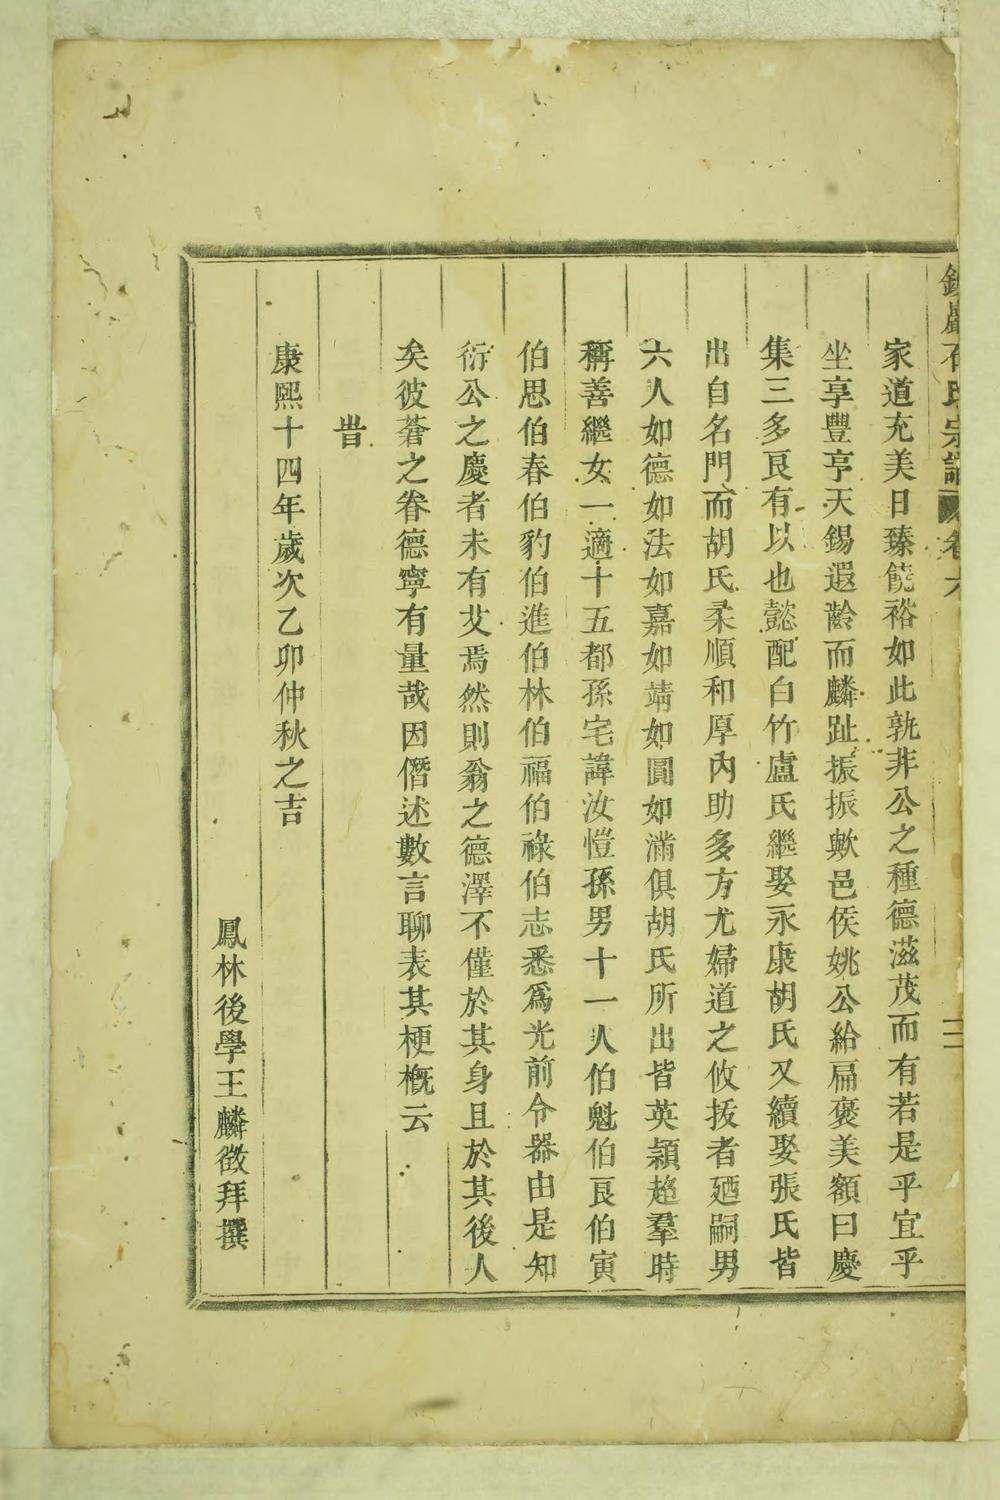 石氏宗譜 卷六 三
家道充美日臻饒裕如此孰非公之種德滋茂而有若是乎宜乎
坐享豐亨天錫遐齡而麟趾振振歟邑侯姚公給扁褒美額曰慶
集三多良有以也懿配白竹盧氏繼娶永康胡氏又續娶張氏皆
出自名門而胡氏柔順和厚內助多方尤婦道之攸拔者廼嗣男
六人如德如法如嘉如靖如圓如滿俱胡氏所出皆英穎超羣時
稱善繼女一適十五都孫宅諱汝愷孫男十一人伯魁伯良伯寅
伯思伯春伯豹伯進伯林伯福伯祿伯志悉爲光前令器由是知
衍公之慶者未有艾焉然則翁之德澤不僅於其身且於其後人
矣彼蒼之眷德寧有量哉因僭述數言聊表其梗概云
旹
康熙十四年歲次乙卯仲秋之吉
鳳林後學王麟徵拜撰